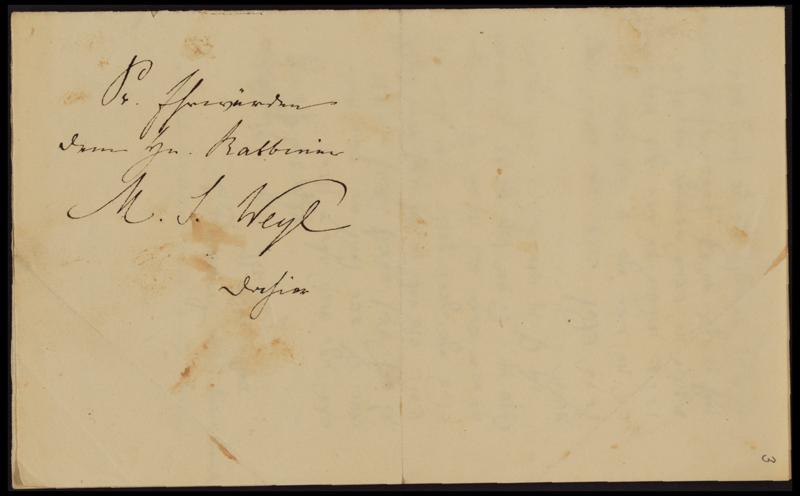 Sr. Ehrwürden
dem Hn. Rabbiner
M. S. Weyl
dahier
3